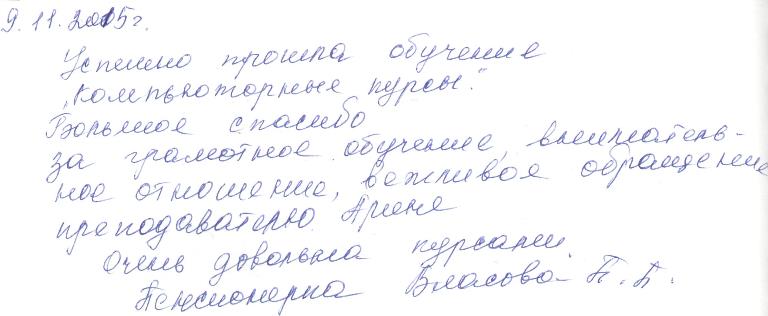 9.11.2015г.
Успешно прошла обучение
"Компьюторные курсы."
Большое спасибо
за грамотное обучение, вниматель-
ное отношение, вежливое обращение
преподавателю Арине
Очень довольна курсами.
Пенсионерка Власова П.Б.